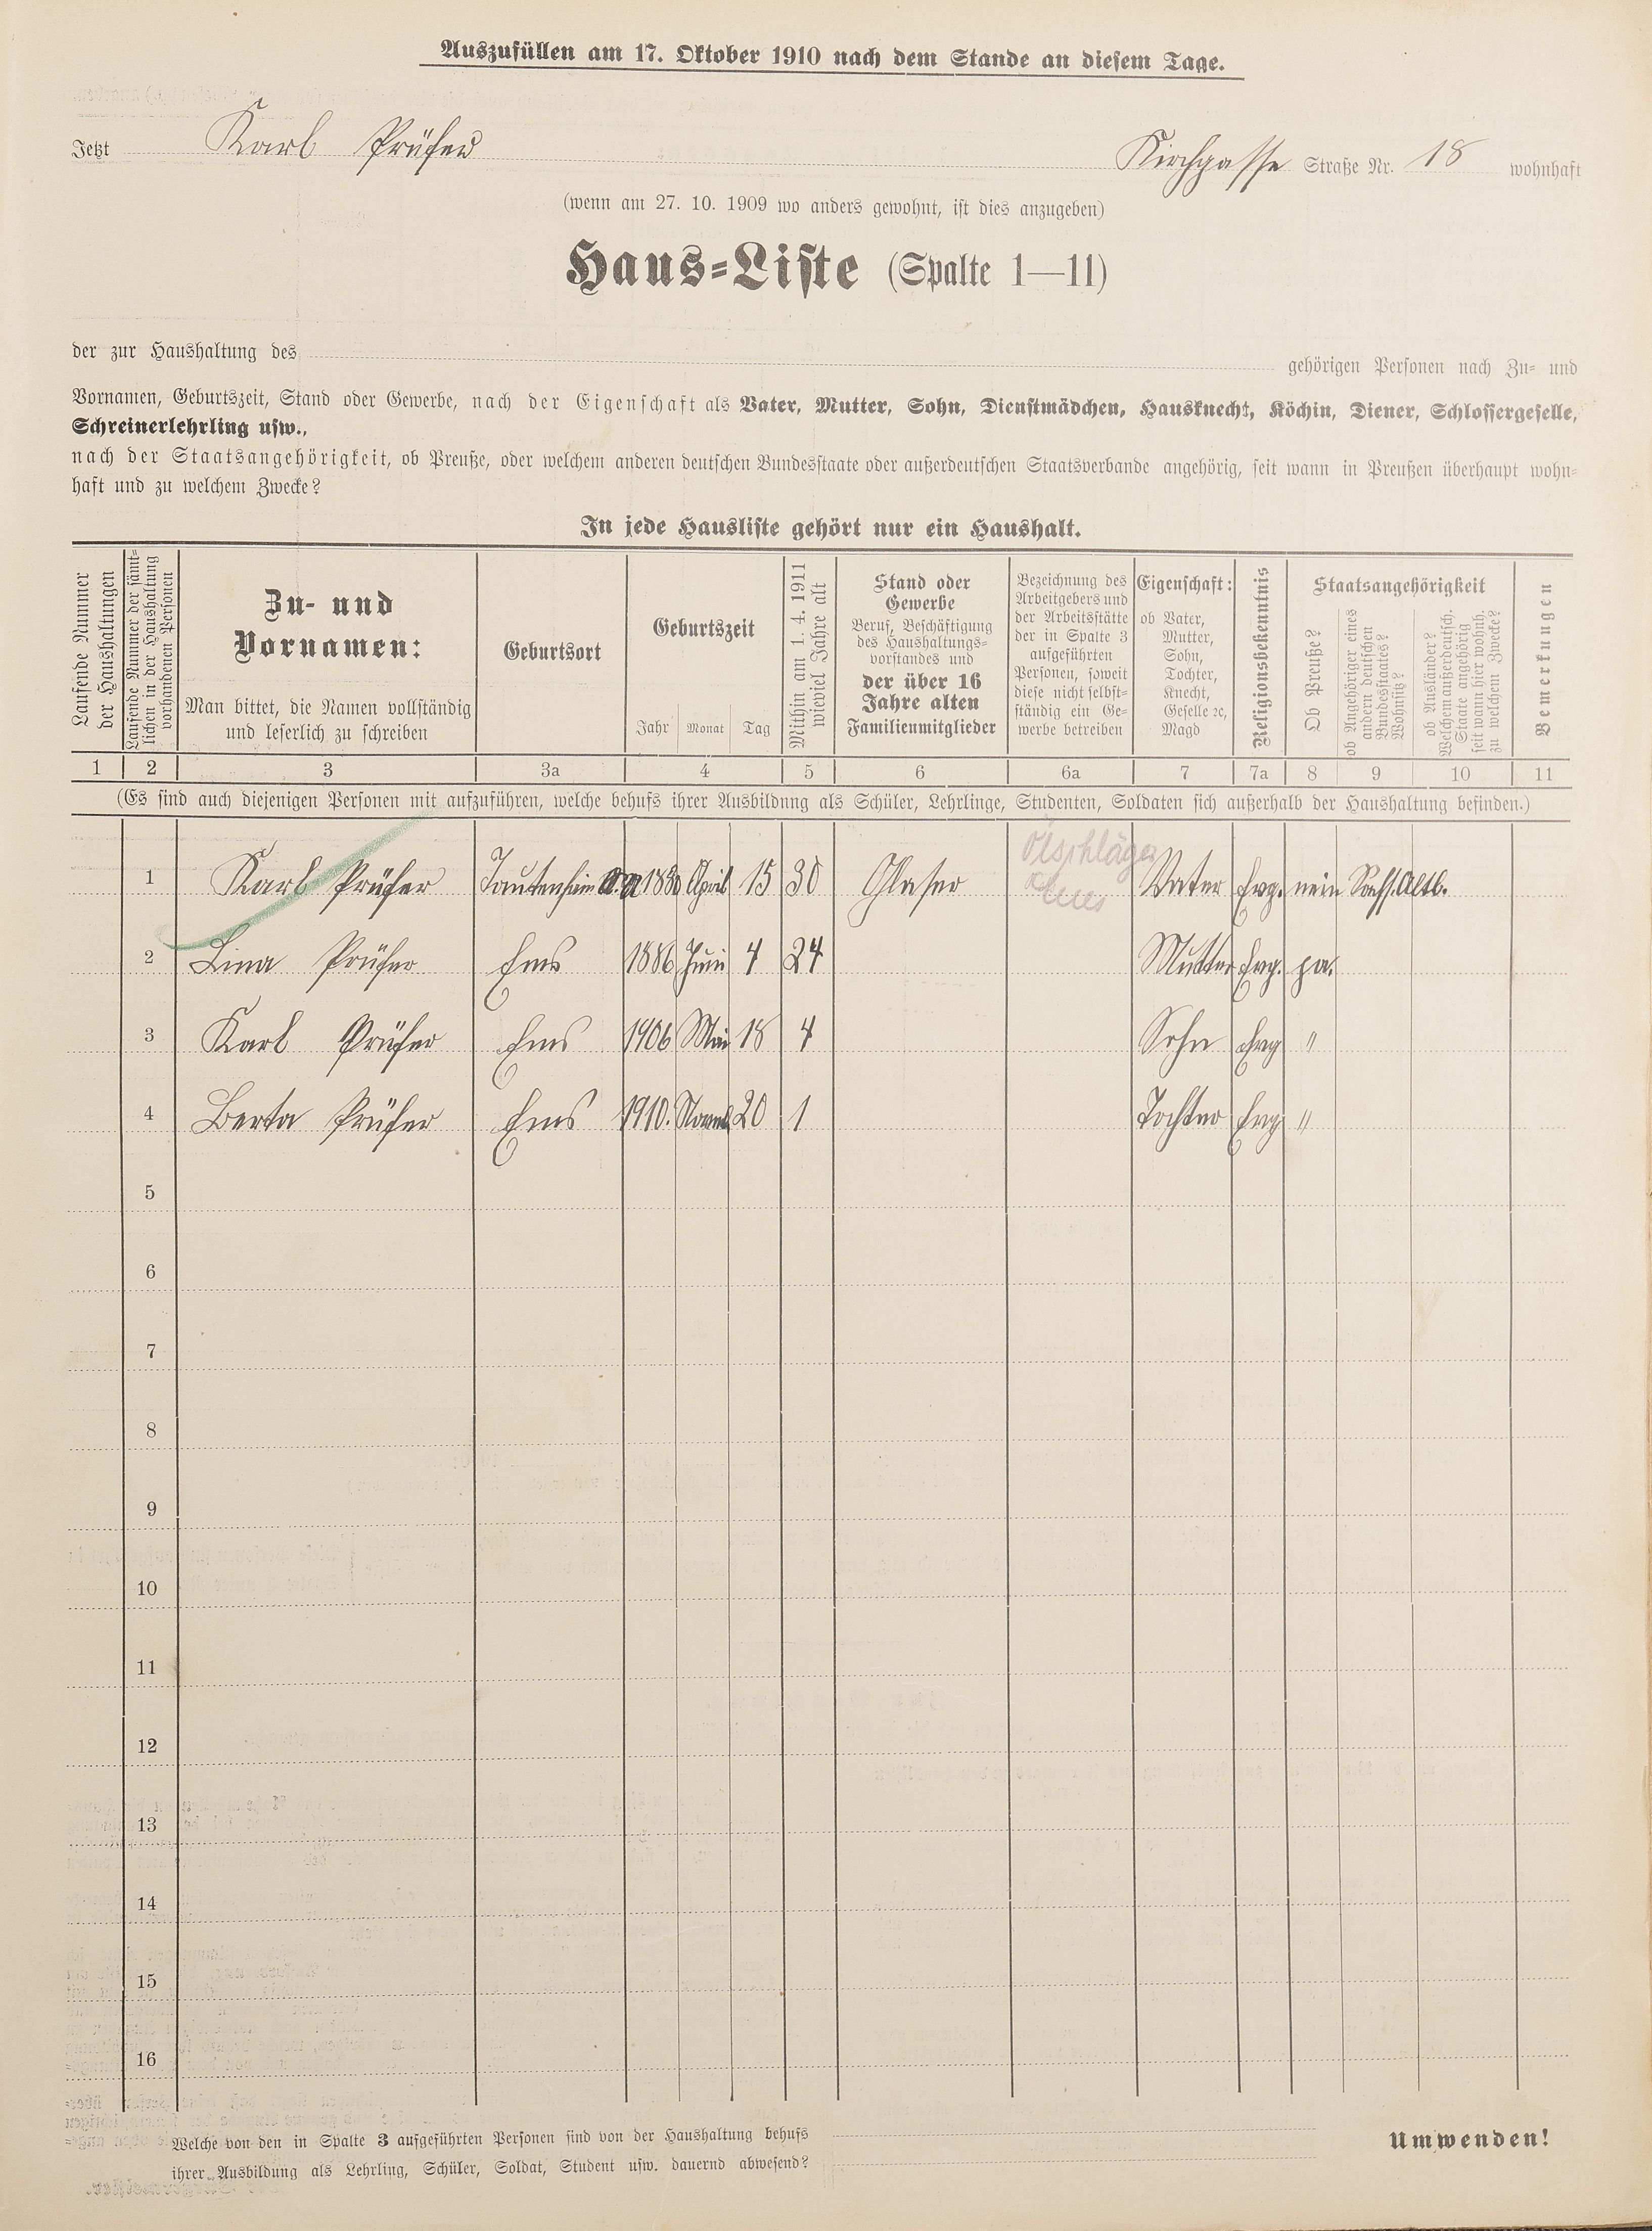 Auszufüllen am 17. Oktober 1910 nach dem Stande an diesem Tage.
Jetzt Karl Prüfer Kirchgasse Straße Nr. 18 wohnhaft
(wenn am 27. 10. 1909 wo anders gewohnt, ist dies anzugeben)
Haus-Liste (Spalte 1—11)
der zur Haushaltung des gehörigen Personen nach Zu- und
Vornamen, Geburtszeit, Stand oder Gewerbe, nach der Eigenschaft als Vater, Mutter, Sohn, Dienstmädchen, Hausknecht, Köchin, Diener, Schlossergeselle,
Schreinerlehrling usw.,
nach der Staatsangehörigkeit, ob Preuße, oder welchem anderen deutschen Bundesstaate oder außerdeutschen Staatsverbande angehörig, seit wann in Preußen überhaupt wohn-
haft und zu welchem Zwecke?
In jede Hausliste gehört nur ein Haushalt.
Laufende Nummer
der Haushaltungen
Laufende Nummer der sämt-
lichen in der Haushaltung
vorhandenen Personen
Zu- und
Vornamen:
Man bittet, die Namen vollständig
und leserlich zu schreiben
Geburtsort
Geburtszeit
Jahr Monat Tag
Mithin am 1. 4. 1911
wieviel Jahre alt
Stand oder
Gewerbe
Beruf, Beschäftigung
des Haushaltungs-
vorstandes und
der über 16
Jahre alten
Familienmitglieder
Bezeichnung des
Arbeitgebers und
der Arbeitsstätte
der in Spalte 3
aufgeführten
Personen, soweit
diese nicht selbst-
ständig ein Ge-
werbe betreiben
Eigenschaft:
ob Vater,
Mutter,
Sohn,
Tochter,
Knecht,
Geselle ꝛc,
Magd
Religionsbekenntnis
Staatsangehörigkeit
Ob Preuße?
ob Angehöriger eines
andern deutschen
Bundesstaates?
Wohnsitz?
ob Ausländer?
Welchem außerdeutsch.
Staate angehörig
seit wann hier wohnh.
zu welchem Zwecke?
Bemerkungen
1 2 3 3a 4 5 6 6a 7 7a 8 9 10 11
(Es sind auch diejenigen Personen mit aufzuführen, welche behufs ihrer Ausbildung als Schüler, Lehrlinge, Studenten, Soldaten sich außerhalb der Haushaltung befinden.)
1 Karl Prüfer Tautenhain 1880 April 15 30 Glaser Ölschläger Ems Vater Evg. nein Sachs. Altb.
2 Lina Prüfer Ems 1886 Juni 4 24 Mutter Evg. ja.
3 Karl Prüfer Ems 1906 Mai 18 4 Sohn Evg "
4 Berta Prüfer Ems 1910. Novmb. 20 1 Tochter Evg "
5
6
7
8
9
10
11
12
13
14
15
16
Welche von den in Spalte 3 aufgeführten Personen sind von der Haushaltung behufs
ihrer Ausbildung als Lehrling, Schüler, Soldat, Student usw. dauernd abwesend?
Umwenden!